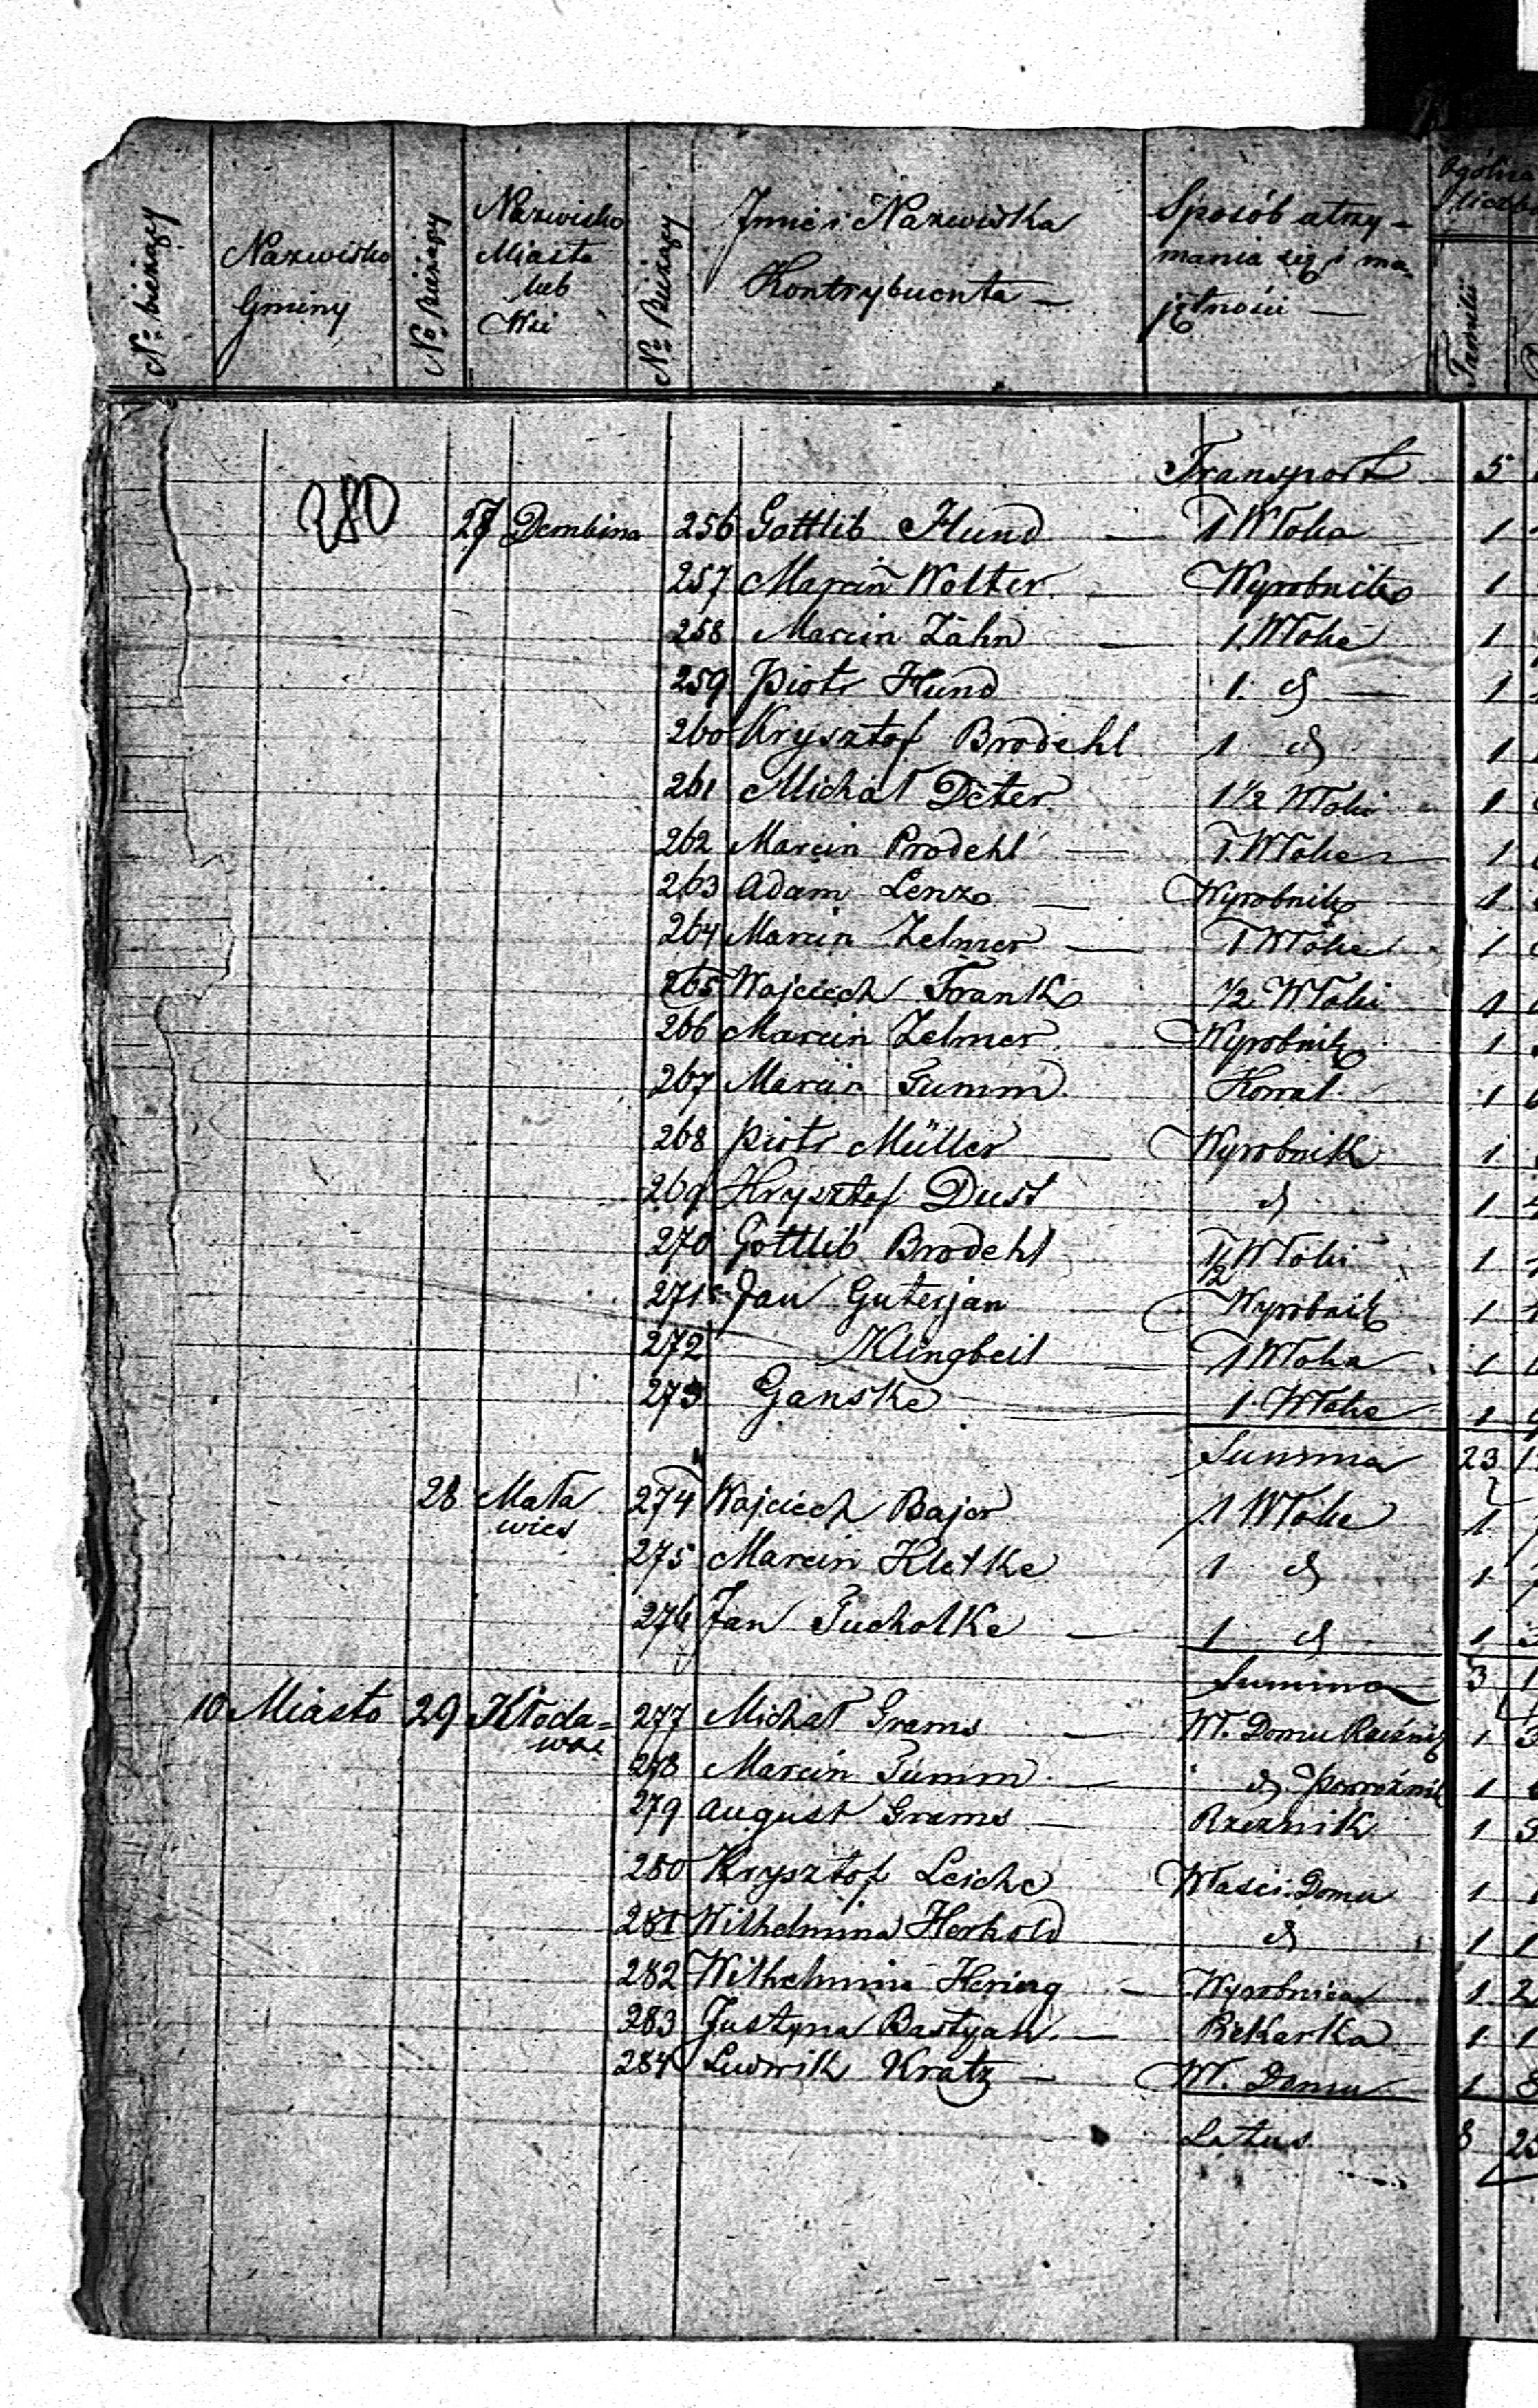 No bieżący
Nazwisko Gminy
No Bieżący
Nazwisko Miasta lub Wsi
No Bieżący
Jmie i Nazwiska Kontrybuenta
Sposób utrzymania się i majętności
Ogólna liczba
Familii
Transport 5
280
27 Dembina 256 Gottlib Hund — 1 Włoka 1
257 Marcin Wolter — Wyrobnik 1
258 Marcin Zähn — 1. Włoke 1
259 Piotr Hund 1. d — 1
260 Krysztof Brodehl 1 d 1
261 Michał Deter 1 1/2 Włoki 1
262 Marcin Prodehl — 1. Włoke 1
263 Adam Lenz — Wyrobnik 1
264 Marcin Zelmer — 1 Włoke 1
265 Wojciech Frank 1/2 Włoki 1
266 Marcin Zelmer Wyrobnik 1
267 Marcin Gumm Kowal 1
268 Piotr Müller — Wyrobnik 1
269 Krysztof Dust d 1
270 Gottlib Brodehl 1/2 Włoki 1
271 Jan Guterjan Wyrobnik 1
272 Klingbeil — 1 Włoka 1
273 Ganske — 1. Włoke 1
Summa 23
28 Mała 274 Wojciech Bajer 1 Włoke 1
wies
275 Marcin Kletke 1 d 1
276 Jan Tucholke — 1 d 1 3
Summa 3 1
10 Miasto 29 Kłoda= 277 Michał Grams — Wł. Domu Rzeźnik 1 3
wa
278 Marcin Tumm — d Powroźnik 1
279 August Grams — Rzeznik 1 3
280 Krysztof Leiche Właści. Domu 1
281 Wilhelmina Herhold d 1 1
282 Wilhelmina Hering — Wyrobnica 1 2
283 Justyna Bastyan — Bekarka 1 1
284 Ludwik Kratz — Wł. Domu 1 8
Latus 8 25